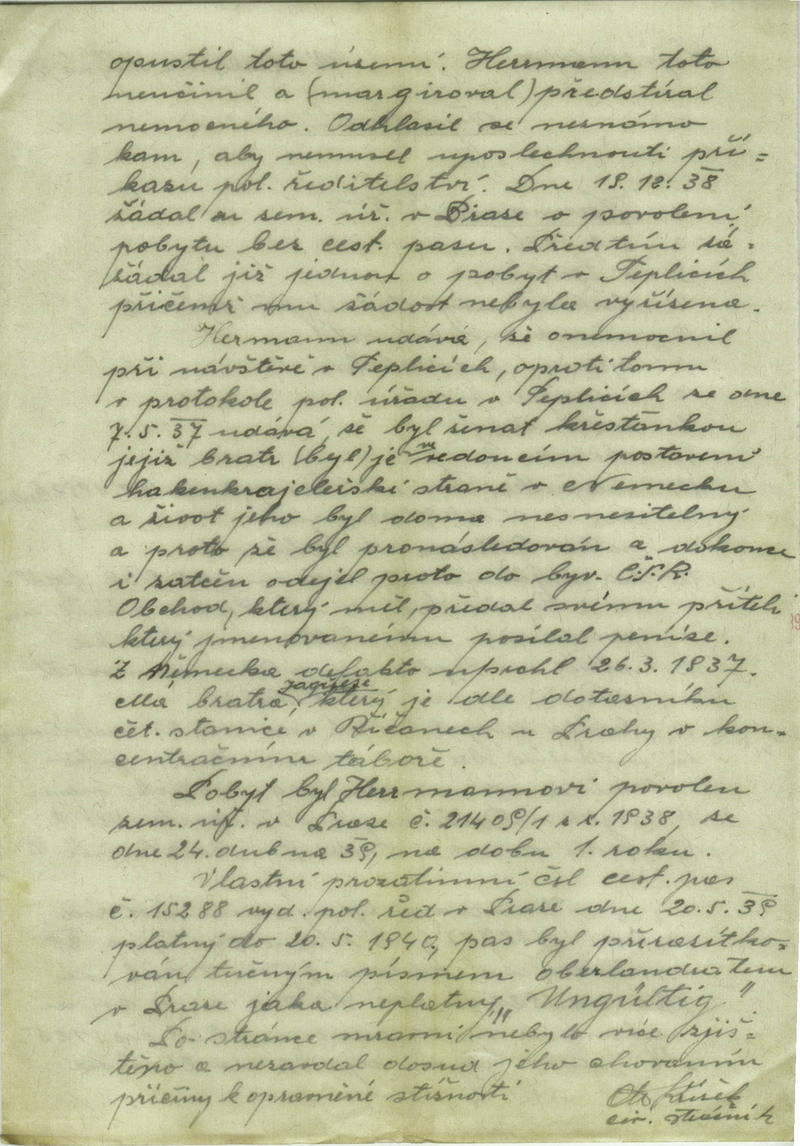 opustil toto území. Herrmann toto
neučinil a (margiroval) předstíral
nemocného. Odhlásil se neznámo
kam, aby nemusel uposlechnouti pří=
kazu pol. ředitelství. Dne 19.12.38
žádal u zem. úř. v Praze o povolení
pobytu bez cest. pasu. Předtím žá=
žádal již jednou o pobyt v Teplicích
přičemž mu žádost nebyla vyřízena.
Hermann udává, že onemocnil
při návštěvě v Teplicích, oproti tomu
v protokole pol. úřadu v Teplicích ze dne
7.5.37 udává, že byl ženat křesťankou
jejíž bratr (byl) je ve vedoucím postavení
hakenkrajclerské straně v Německu
a život jeho byl doma nesnesitelný
a proto že byl pronásledován a dokonce
i zatčen odejel proto do býv. Č.S.R.
Obchod, který měl, předal svému příteli
který jmenovanému posílal peníze.
Z Německa defakto uprchl 26.3.1937.
Má bratra, který je dle dotazníku
čet. stanice v Říčanech u Prahy v kon=
centračním táboře.
Pobyt byl Herrmannovi povolen
zem. úř. v Praze č. 21409/1 z r. 1938, ze
dne 24. dubna 39, na dobu 1. roku.
Vlastní prozatimní čsl cest. pas
č. 15288 vyd. pol. řed v Praze dne 20.5.39
platný do 20.5.1940, pas byl přerazítko=
ván tučným písmem oberlandratem
v Praze jako neplatný „Ungültig"
Po stránce mravní nebylo více zjiš=
těno a nezavdal dosud jeho chováním
příčiny k oprávněné stížnosti
civ. strážník